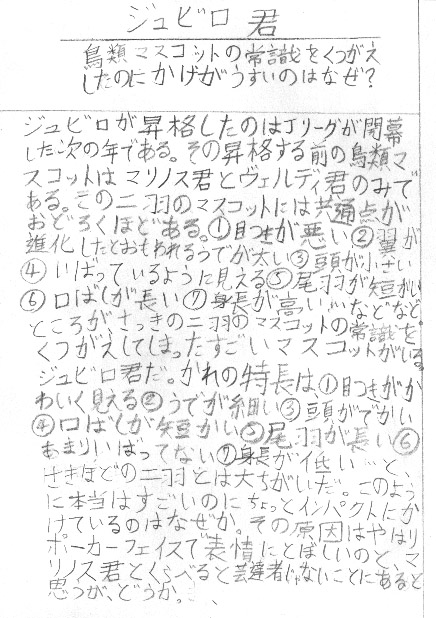 ジュビロ 君
鳥類マスコットの常識をくつがえ
したのにかげがうすいのはなぜ?
ジュビロが昇格したのはJリーグが開幕
した次の年である。その昇格する前の鳥類マ
スコットはマリノス君とヴェルディ君のみで
ある。この二羽のマスコットには共通点が
おどろくほどある。①目つきが悪い②翼が
進化したとおもわれるうでが太い③頭が小さい
④いばっているように見える⑤尾羽が短かい
⑥口ばしが長い⑦身長が高い…などなど。
ところが、さっきの二羽のマスコットの常識を
くつがえしてしまったすごいマスコットがいる。
ジュビロ君だ。かれの特長は①目つきがか
わいく見える②うでが細い③頭がでかい
④口ばしが短かい⑤尾羽が長い⑥
あまりいばってない⑦身長が低い…と、
さきほどの二羽とは大ちがいだ。このよう
に本当はすごいのにちょっとインパクトにか
けているのはなぜか。その原因はやはり
ポーカーフェイスで表情にとぼしいのと、マ
リノス君とくらべると芸達者じゃないことにあると
思うが、どうか。